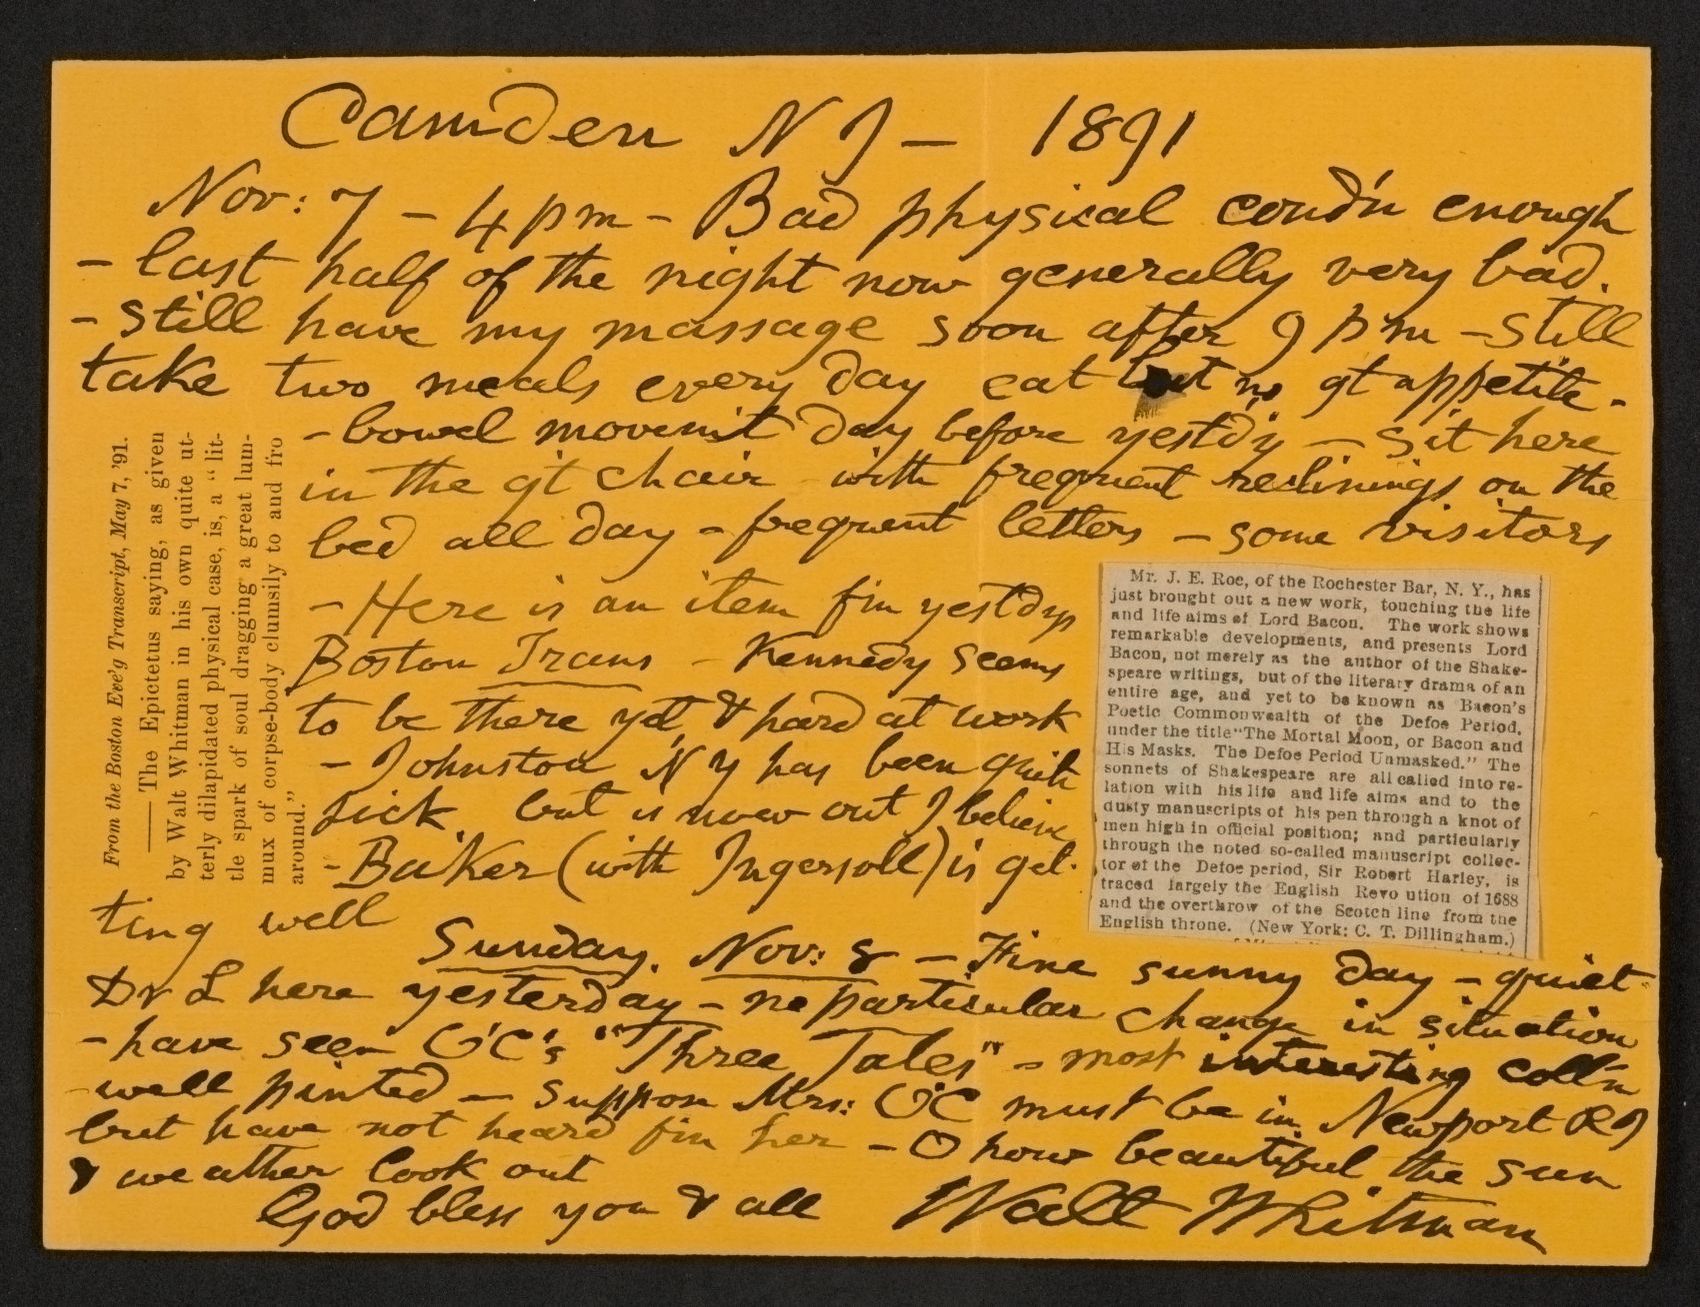 Camden N J — 1891
Nov: 7 — 4 pm — Bad physical cond'n enough
— last half of the night now generally very bad.
— still have my massage soon after 9 pm — still
take two meals every day eat but no gt appetite —
— bowel movem't day before yestd'y — sit here
in the gt chair with frequent reclinings on the
bed all day — frequent letters — some visitors
— Here is an item f'm yestdys
Boston Trans — Kennedy seems
to be there yet, & hard at work
— Johnston N Y has been quite
sick but is now out I believe
— Baker (with Ingersoll) is get-
ting well
From the Boston Eve'g Transcript, May 7, '91.
—— The Epictetus saying, as given
by Walt Whitman in his own quite ut-
terly dilapidated physical case, is, a "lit-
tle spark of soul dragging a great lum-
mux of corpse-body clumsily to and fro
around."
Mr. J. E. Roe, of the Rochester Bar, N. Y., has
just brought out a new work, touching the life
and life aims of Lord Bacon. The work shows
remarkable developments, and presents Lord
Bacon, not merely as the author of the Shake-
speare writings, but of the literary drama of an
entire age, and yet to be known as Bacon's
Poetic Commonwealth of the Defoe Period,
under the title "The Mortal Moon, or Bacon and
His Masks. The Defoe Period Unmasked." The
sonnets of Shakespeare are all called into re-
lation with his life and life aims and to the
dusty manuscripts of his pen through a knot of
men high in official position; and particularly
through the noted so-called manuscript collec-
tor of the Defoe period, Sir Robert Harley, is
traced largely the English Revo ution of 1688
and the overthrow of the Scotch line from the
English throne. (New York: C. T. Dillingham.)
Sunday, Nov: 8 — Fine sunny day — quiet —
Dr L here yesterday — no particular change in situation
— have seen O'C's "Three Tales" — most interesting coll'n
— well pinted — suppose Mrs: O'C must be in Newport R I
but have not heard f'm her — O how beautiful the sun
& weather look out
God bless you & all Walt Whitman